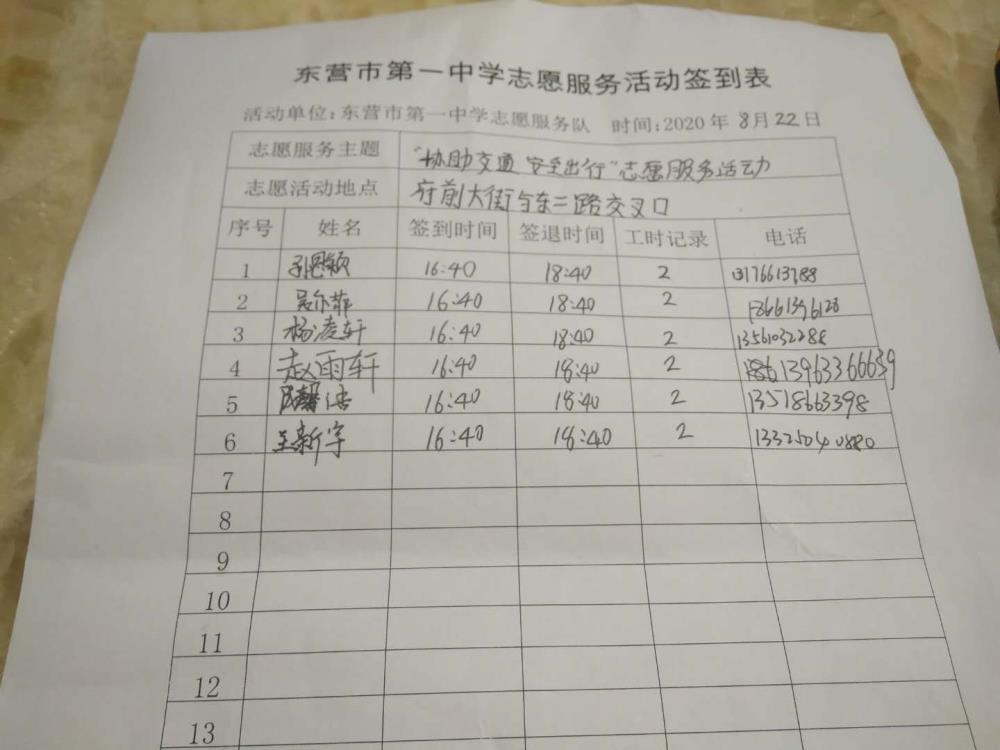 东营市第一中学志愿服务活动签到表
活动单位:东营市第一中学志愿服务队 时间:2020年8月22日
志愿服务主题 "协助交通 安全出行"志愿服务活动
志愿活动地点 府前大街与东二路交叉口
序号 姓名 签到时间 签退时间 工时记录 电话
1 孙思颖 16:40 18:40 2
2 吴尔菲 16:40 18:40 2
3 杨凌轩 16:40 18:40 2 13561032288
4 赵雨轩 16:40 18:40 2
5 16:40 18:40 2 13518663398
6 王新宇 16:40 18:40 2 13325040880
7
8
9
10
11
12
13